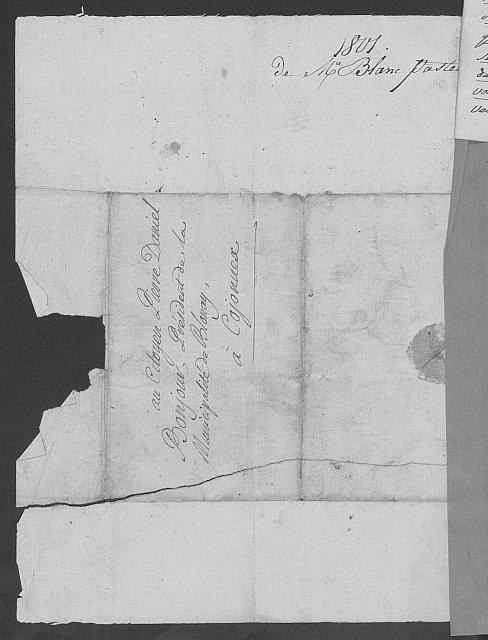 1801.
de Mr Blanc Paste
au Citoyen Pierre Daniel
Bonjour, Président de la
Municipalité de Blonay,
à Cojonnex